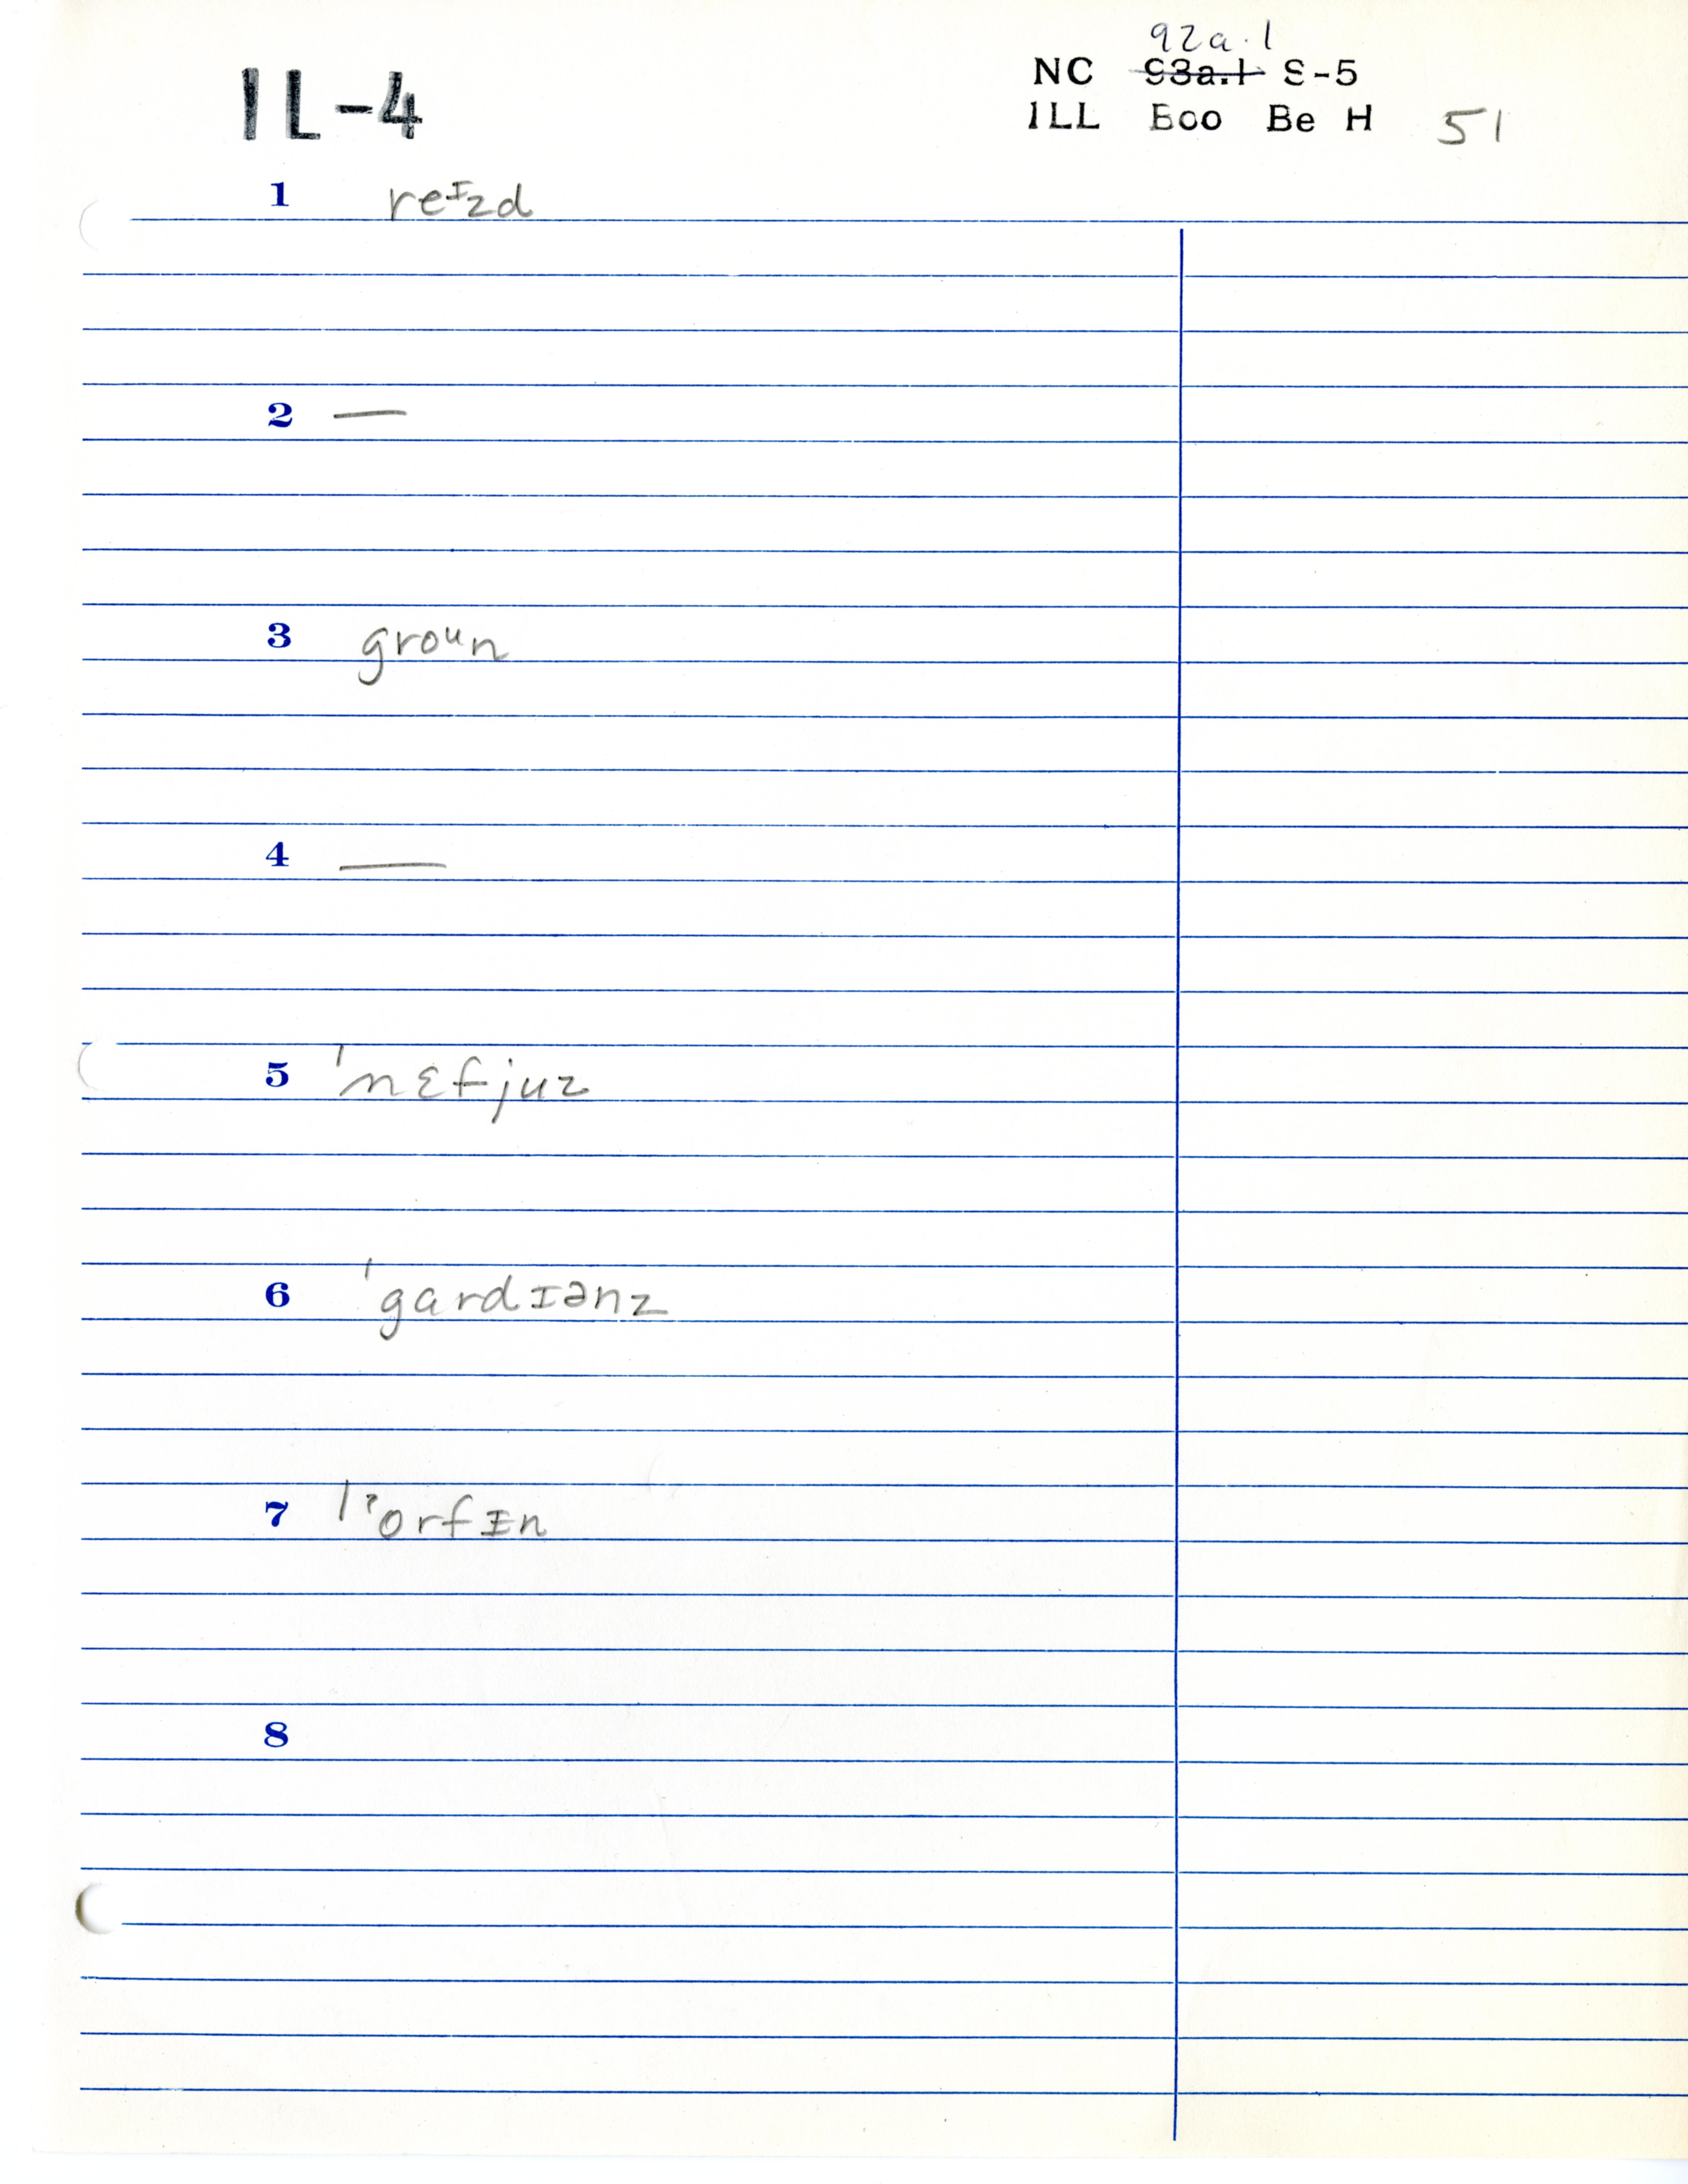 92a.1
IL-4
NC 93a.1 S-5
ILL Boo Be H 51
1 reᵻzd
2 —
3 groᵘn
4 —
5 ˈnɛfjuz
6 ˈgardɪənz
7 ˈˀɔrfᵻn
8